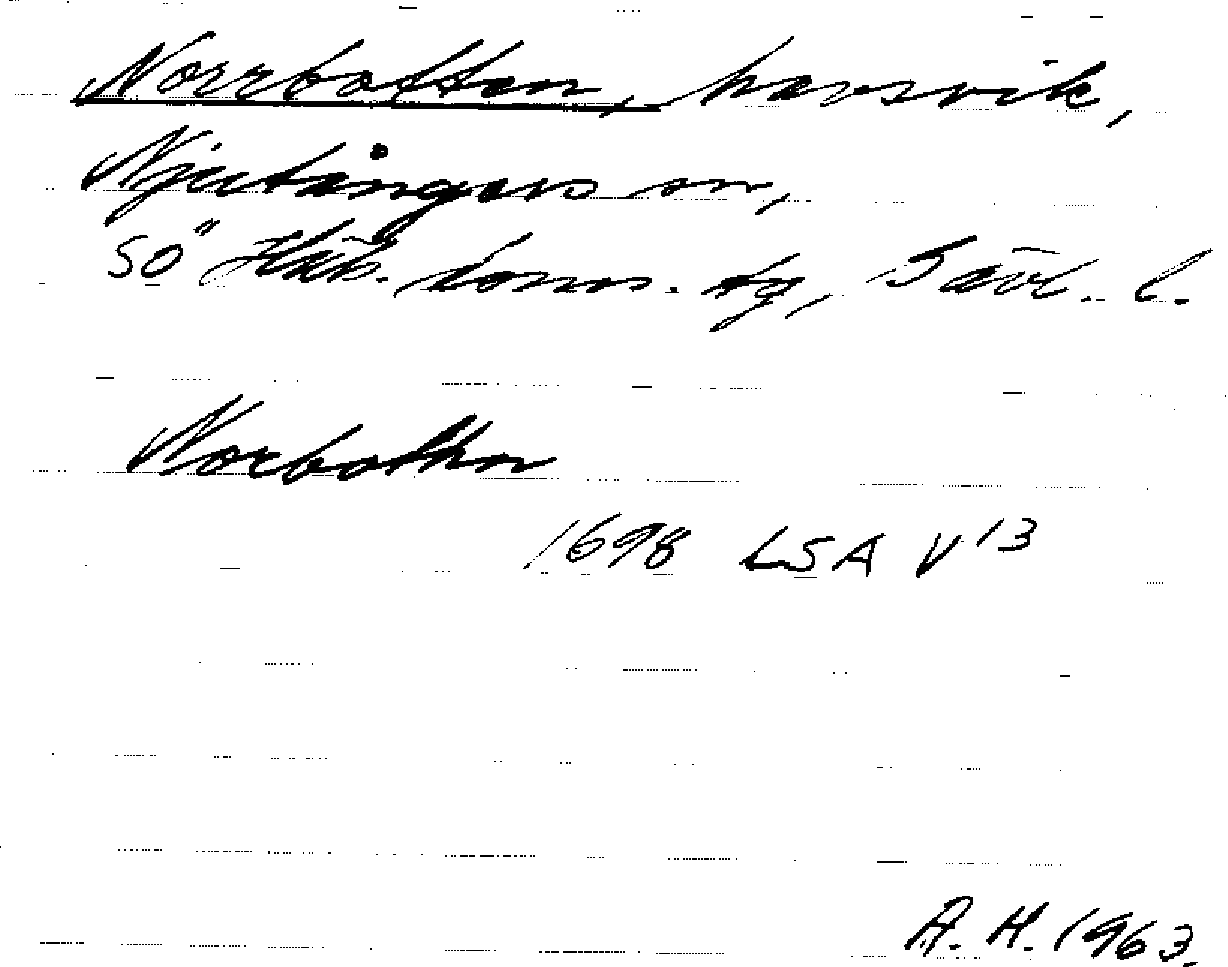 Norrbotten, havsvik,
Njutångers sn,
SÖ Häls. doms. tg, Gävl. l.
Norbotten
1698 LSA V13
A. H. 1963.